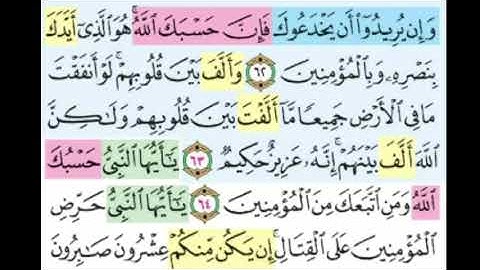 وَإِن يُرِيدُوٓا۟ أَن يَخْدَعُوكَ فَإِنَّ حَسْبَكَ ٱللَّهُ ۚ هُوَ ٱلَّذِىٓ أَيَّدَكَ
بِنَصْرِهِۦ وَبِٱلْمُؤْمِنِينَ ٦٢ وَأَلَّفَ بَيْنَ قُلُوبِهِمْ ۚ لَوْ أَنفَقْتَ
مَا فِى ٱلْأَرْضِ جَمِيعًا مَّآ أَلَّفْتَ بَيْنَ قُلُوبِهِمْ وَلَٰكِنَّ
ٱللَّهَ أَلَّفَ بَيْنَهُمْ ۚ إِنَّهُۥ عَزِيزٌ حَكِيمٌ ٦٣ يَٰٓأَيُّهَا ٱلنَّبِىُّ حَسْبُكَ
ٱللَّهُ وَمَنِ ٱتَّبَعَكَ مِنَ ٱلْمُؤْمِنِينَ ٦٤ يَٰٓأَيُّهَا ٱلنَّبِىُّ حَرِّضِ
ٱلْمُؤْمِنِينَ عَلَى ٱلْقِتَالِ ۚ إِن يَكُن مِّنكُمْ عِشْرُونَ صَٰبِرُونَ